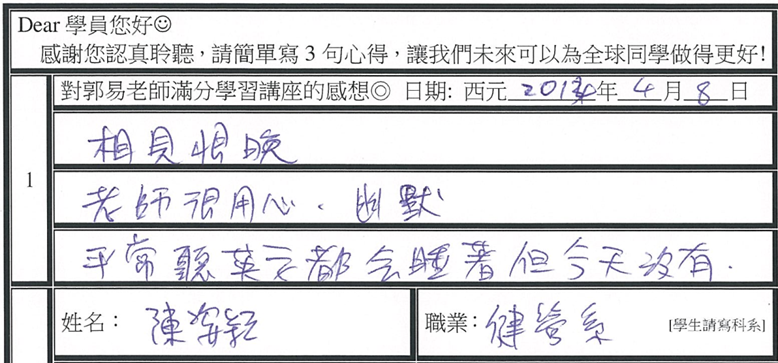 Dear 學員您好☺
感謝您認真聆聽，請簡單寫 3 句心得，讓我們未來可以為全球同學做得更好!
對郭易老師滿分學習講座的感想◎ 日期: 西元 2013 年 4 月 8 日
1
相見恨晚
老師很用心、幽默
平常聽英文都會睡著但今天沒有.
姓名： 陳姿穎
職業： 健管系 [學生請寫科系]